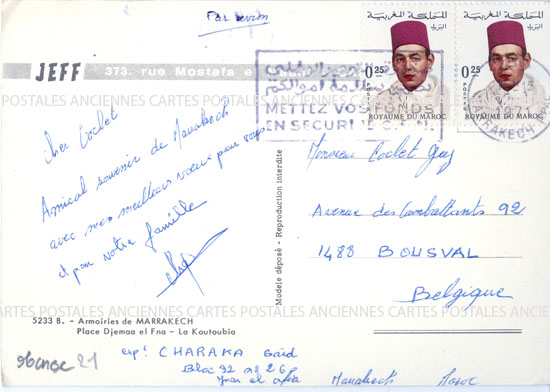 Par avion
المملكة المغربية
البريد
0.25
POSTES
ROYAUME DU MAROC
المملكة المغربية
البريد
0.25
POSTES
ROYAUME DU MAROC
JEFF 373, rue Mostafa el
METTEZ VOS FONDS
EN SECURITE C.E.N.
1971
MARRAKECH
POSTALES ANCIENNES CARTES POSTALES ANCIENNES CARTES POSTALES ANCIENNES CARTES
Cher Coclet
Amical souvenir de Marrakech
avec mes meilleurs vœux pour vous
et pour votre famille
Modèle déposé - Reproduction interdite
Monsieur Coclet Guy
Avenue des Combattants 92
1488 BOUSVAL
Belgique
CARTES POSTALES ANCIENNES CARTES POSTALES ANCIENNES CARTES POSTALES ANCIENNES
5233 B. - Armoiries de MARRAKECH
Place Djemaa el Fna - La Koutoubia
expt CHARAKA Said
Bloc 92 nº 26
Marrakech Maroc
21